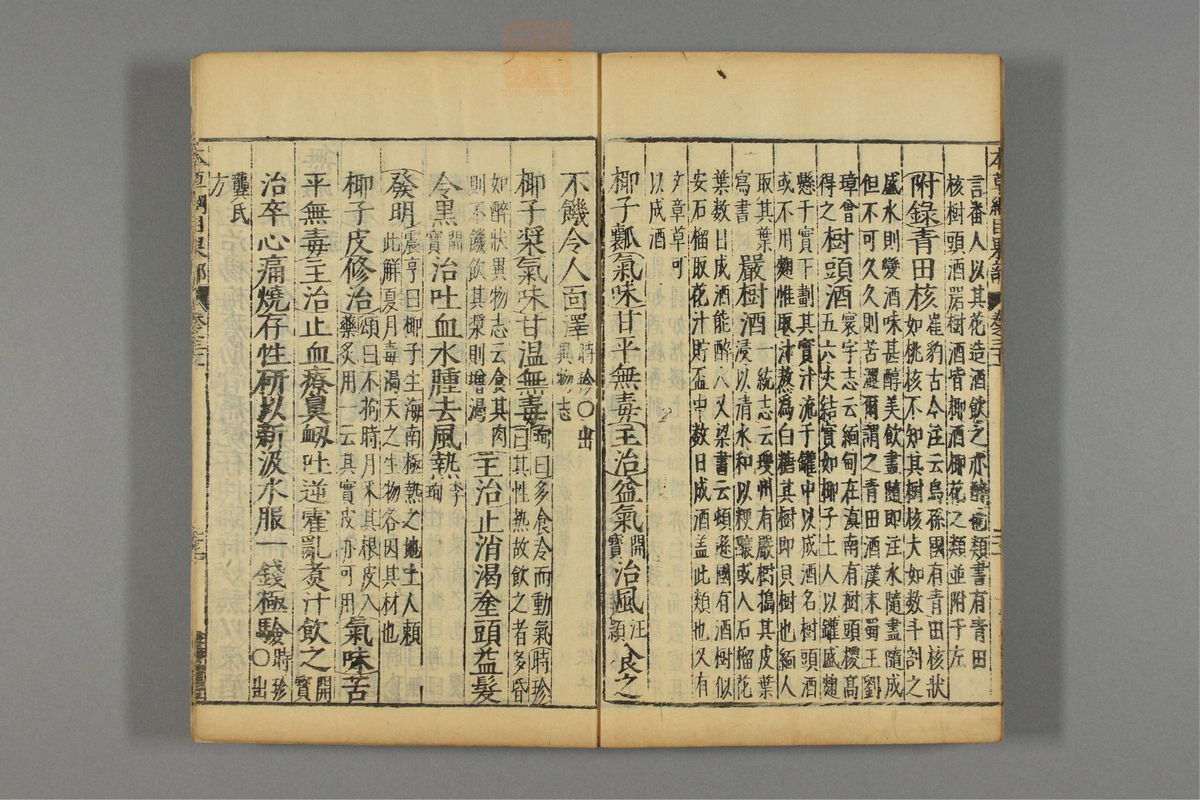 言番人以其花造酒飲之亦醉也類書有青田
核樹頭酒嚴樹酒皆椰酒椰花之類並附于左
附錄青田核崔豹古今注云烏孫國有青田核狀
如桃核不知其樹核大如數斗剖之
盛水則變酒味甚醇美飲盡隨即注水隨盡隨成
但不可久久則苦澀爾謂之青田酒漢末蜀王劉
璋曾得之樹頭酒寰宇志云緬甸在滇南有樹頭椶高
五六丈結實如椰子土人以罐盛麴
懸于實下劃其實汁流于罐中以成酒名樹頭酒
或不用麴惟取汁熬為白糖其樹即貝樹也緬人
取其葉寫書嚴樹酒一統志云瓊州有嚴樹搗其皮葉
浸以清水和以粳釀或入石榴花
葉數日成酒能醉人又梁書云頓遜國有酒樹似
安石榴取花汁貯盃中數日成酒盖此類也又有
文章草可
以成酒
椰子瓤氣味甘平無毒主治益氣開寶治風汪頴食之
不饑令人面澤時珍○出
異物志
椰子漿氣味甘溫無毒珣曰多食冷而動氣時珍
曰其性熱故飲之者多昏
如醉狀異物志云食其肉
則不饑飲其漿則增渴
主治止消渴塗頭益髮
令黑開寶治吐血水腫去風熱李珣
發明震亨曰椰子生海南極熱之地土人賴
此解夏月毒渴天之生物各因其材也
椰子皮修治頌曰不拘時月采其根皮入
藥炙用一云其實皮亦可用
氣味苦
平無毒主治止血療鼻衄吐逆霍亂煮汁飲之開寶
治卒心痛燒存性研以新汲水服一錢極驗時珍○出
龔氏
方
本草綱目果部